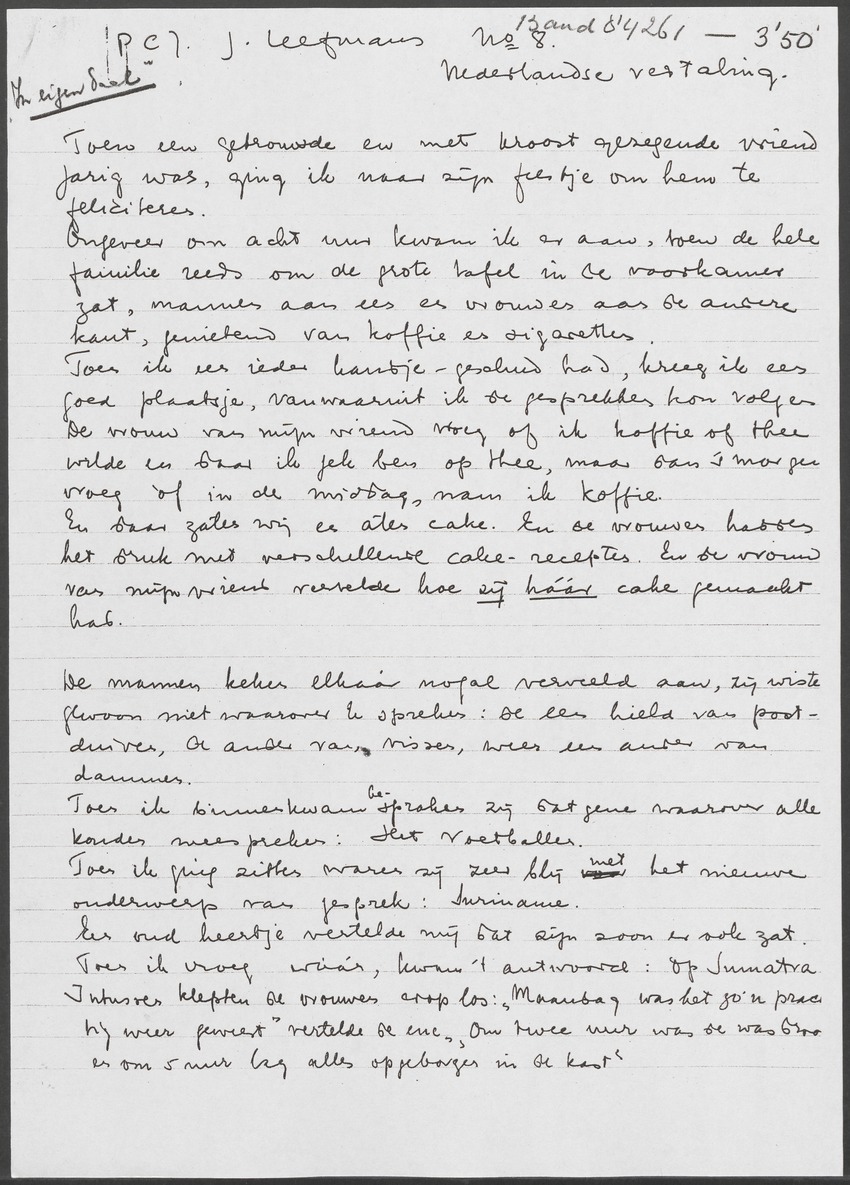 PCJ. J. Leefmans No 8. Band 84261 — 3'50'
"In eigen Taal" Nederlandse vertaling.
Toen een getrouwde en met kroost gezegende vriend
jarig was, ging ik naar zijn feestje om hem te
feliciteren.
Ongeveer om acht uur kwam ik er aan, toen de hele
familie reeds om de grote tafel in de voorkamer
zat, mannen aan een en vrouwen aan de andere
kant, genietend van koffie en sigaretten.
Toen ik een ieder handje-geschud had, kreeg ik een
goed plaatsje, vanwaaruit ik de gesprekken kon volgen
De vrouw van mijn vriend vroeg of ik koffie of thee
wilde en daar ik gek ben op thee, maar dan 's morgen
vroeg of in de middag, nam ik koffie.
En daar zaten wij en aten cake. En de vrouwen hadden
het druk met verschillende cake-recepten. En de vrouw
van mijn vriend vertelde hoe zij háár cake gemaakt
had.
De mannen keken elkaar nogal verveeld aan, zij wiste
gewoon niet waarover te spreken: de een hield van post-
duiven, de ander van vissen, weer een ander van
dammen.
Toen ik binnenkwam be-spraken zij datgene waarover alle
konden meespreken: Het Voetballen.
Toen ik ging zitten waren zij zeer blij met het nieuwe
onderwerp van gesprek: Suriname.
Een oud heertje vertelde mij dat zijn zoon er ook zat.
Toen ik vroeg wáár, kwam 't antwoord: Op Sumatra
Intussen klepten de vrouwen erop los: „Maandag was het zo'n prac
tig weer geweest" vertelde de ene, „Om twee uur was de was droo
en om 5 uur lag alles opgeborgen in de kast"